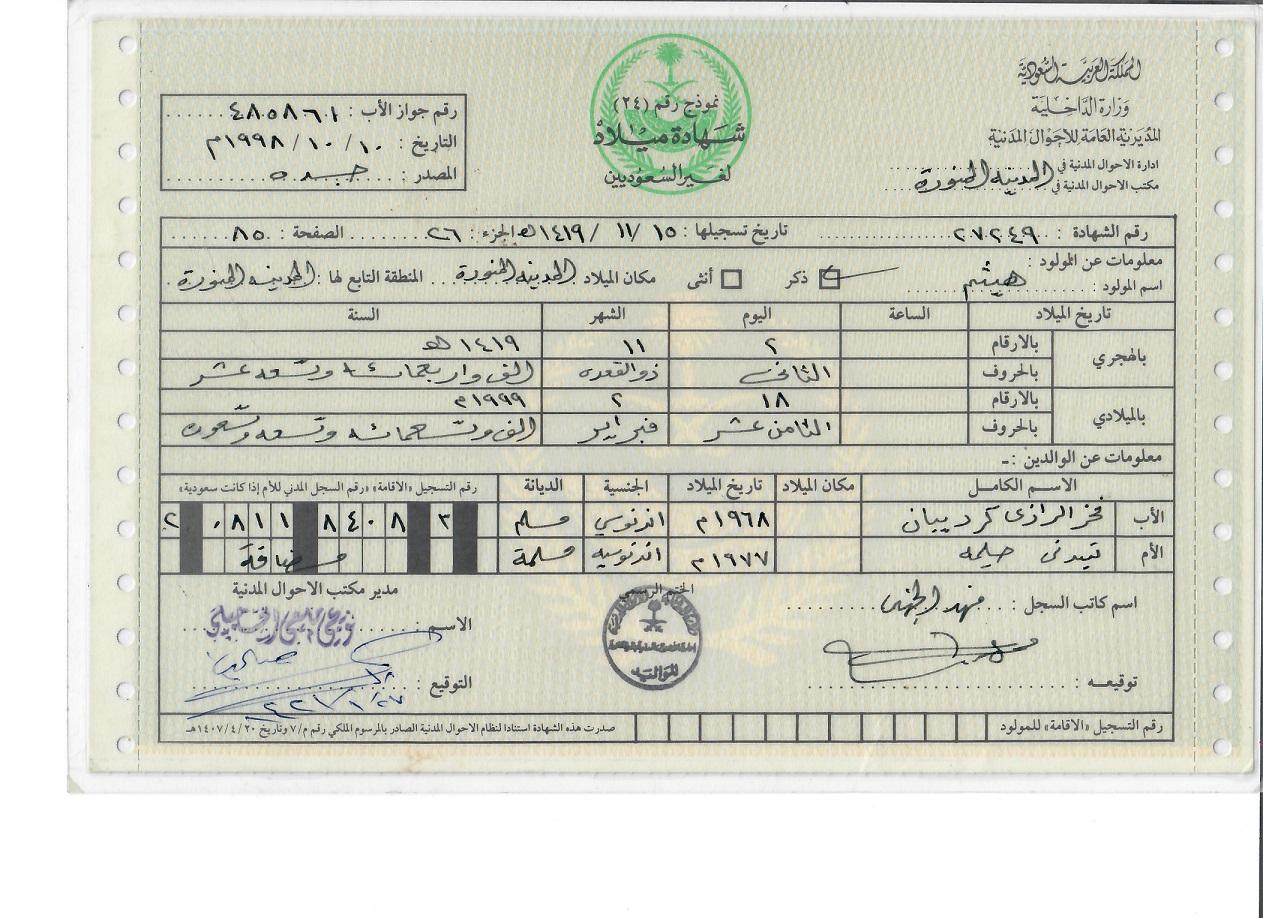 المملكة العربية السعودية
وزارة الداخلية
المديرية العامة للأحوال المدنية
ادارة الاحوال المدنية في
مكتب الاحوال المدنية في المدينه المنورة
نموذج رقم (٢٤)
شهادة ميلاد
لغير السعوديين
رقم جواز الأب : ٤٨٥٨٦١
التاريخ : ١٠ / ١٠ / ١٩٩٨م
المصدر : جده
رقم الشهادة : ٢٧٢٤٩ تاريخ تسجيلها : ١٥ / ١١ / ١٤١٩هـ الجزء : ٢٦ الصفحة : ٨٥
معلومات عن المولود :
اسم المولود : هيثم ذكر أنثى مكان الميلاد المدينه المنورة المنطقة التابع لها : المدينه المنورة
تاريخ الميلاد الساعة اليوم الشهر السنة
بالهجري بالارقام ٢ ١١ ١٤١٩ هـ
بالحروف الثاني ذوالقعده الف واربعمائه وتسعه عشر
بالميلادي بالارقام ١٨ ٢ ١٩٩٩م
بالحروف الثامن عشر فبراير الف وتسعمائه وتسعه وتسعون
معلومات عن الوالدين :ـ
الاسم الكامل مكان الميلاد تاريخ الميلاد الجنسية الديانة رقم التسجيل «الاقامة» «رقم السجل المدني للأم إذا كانت سعودية»
الأب فخر الرازى كرديبان ١٩٦٨م اندنوسي مسلم ٢٠٨١١٨٤٠٨٣
الأم تيدنى حليمه ١٩٧٧م اندنوسيه مسلمة مضافة
اسم كاتب السجل : فهد الجهني
الختم الرسمي
مدير مكتب الاحوال المدنية
الاسم :
توقيعه :
التوقيع :
للمواليد
رقم التسجيل «الاقامة» للمولود
صدرت هذه الشهادة استنادا لنظام الاحوال المدنية الصادر بالمرسوم الملكي رقم م/٧ وتاريخ ١٤٠٧/٤/٢٠هـ